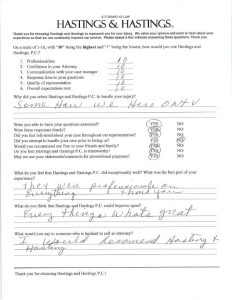 ATTORNEYS AT LAW
HASTINGS & HASTINGS.
Thank you for choosing Hastings and Hastings to represent you for your injury. We value your opinions and want to hear about your
experience so that we can constantly improve our service. Please spend a few minutes answering these questions. Thank you.
On a scale of 1-10, with "10" being the highest and "1" being the lowest, how would you rate Hastings and
Hastings, P.C.?
1. Professionalism 10
2. Confidence in your Attorney 10
3. Communication with your case manager 10
4. Response time to your calls 10
5. Quality of representation 10
6. Overall expectations met 10
Why did you select Hastings and Hastings P.C. to handle your injury?
Some How we Here on TV
Were you able to have your questions answered? YES NO
Were these responses timely? YES NO
Did you feel informed about your case throughout our representation? YES NO
Did you attempt to handle your case prior to hiring us? YES NO
Would you recommend our firm to your friends and family? YES NO
Do you feel Hastings and Hastings P.C. is trustworthy? YES NO
May we use your statements/comments for promotional purposes? YES NO
What do you feel that Hastings and Hastings P.C. did exceptionally well? What was the best part of your
experience?
They were professionals on
Everything Thank you
What do you think that Hastings and Hastings P.C. could improve upon?
Every Things Whats great
What would you say to someone who is hesitant to call an attorney?
I Would Recomend Hasting &
Hasting
Thank you for choosing Hastings and Hastings P.C.!